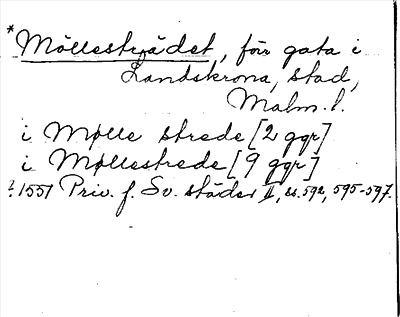 *Möllesträdet, förr gata i
Landskrona, stad,
Malm. l.
i Mølle strede [2 ggr]
i Møllestrede [9 ggr]
? 1551 Priv. f. Sv. städer II, ss. 592, 595-597.